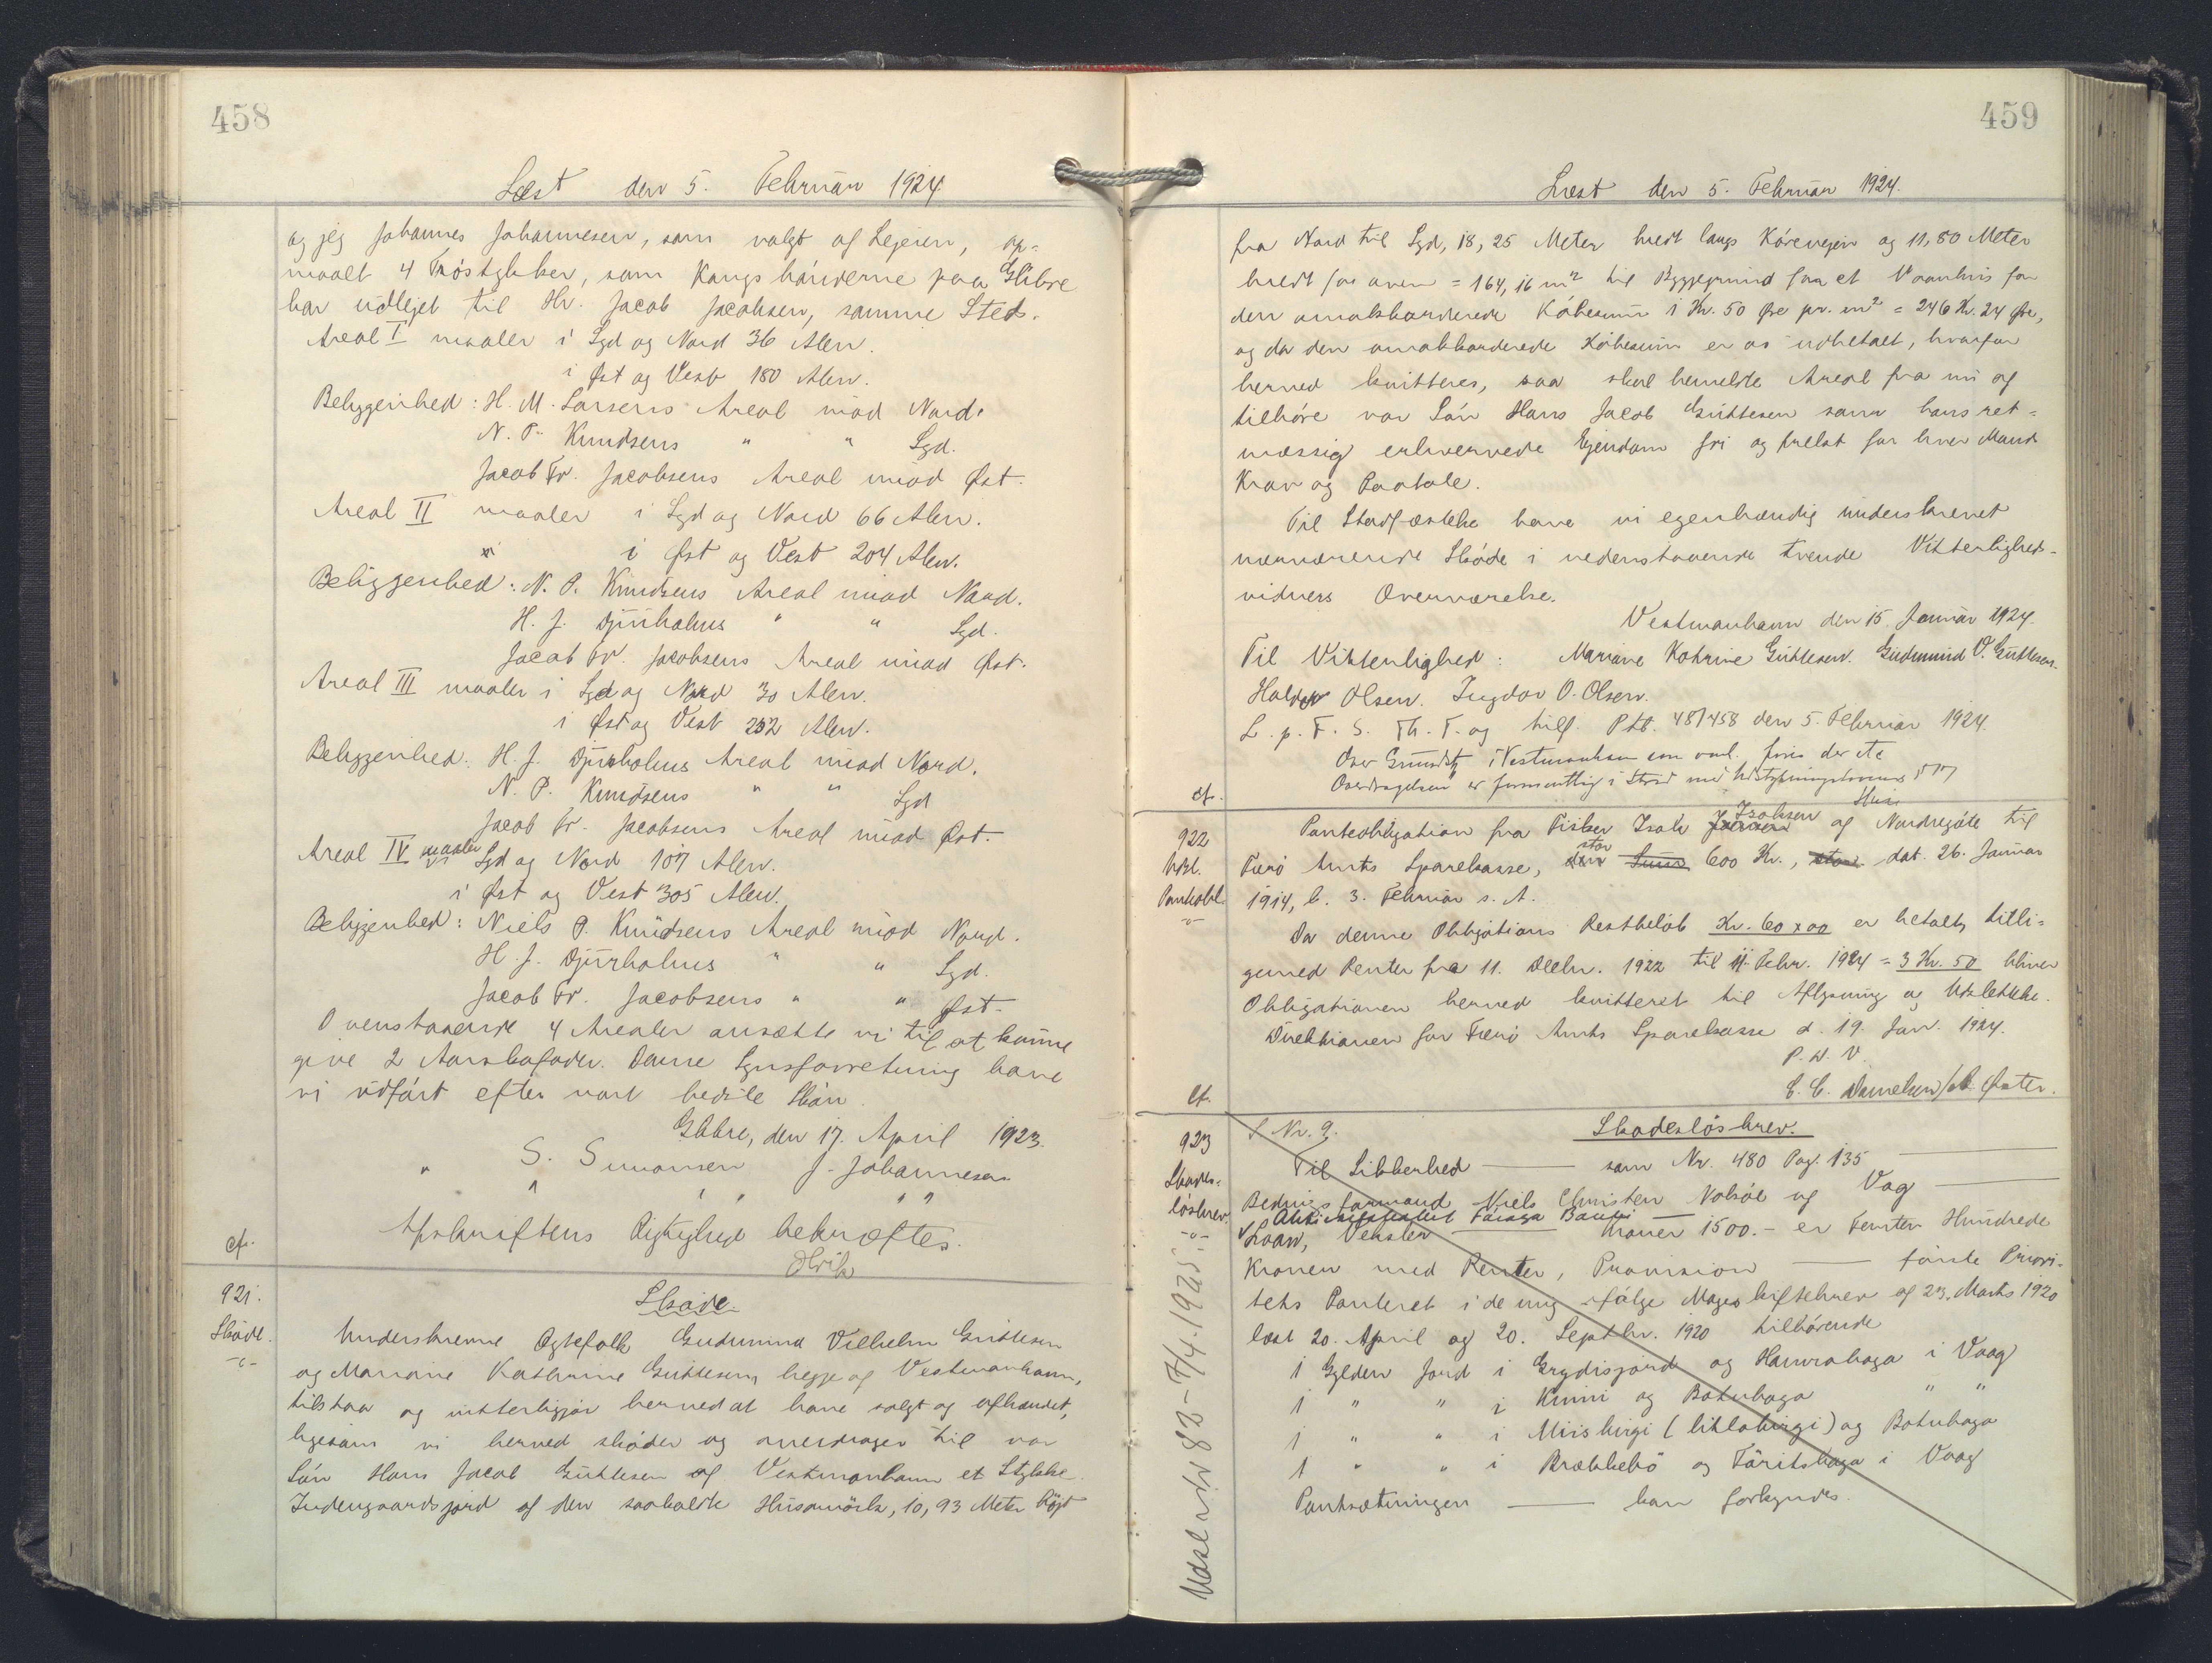 458
Læst den 5. Februar 1924.
og jeg Johannes Johannesen, som valgt af Lejeren, op-
maalt 4 Trøstykker, som Kongsbønderne paa Glibre
har udlejet til Hr. Jacob Jacobsen, samme Sted.
Areal I maaler i Syd og Nord 36 Alen.
i Øst og Vest 180 Alen.
Beliggenhed: H. M. Larsens Areal mod Nord.
N. P. Knudsens " " Syd.
Jacob Fr. Jacobsens Areal mod Øst.
Areal II maaler i Syd og Nord 66 Alen.
i Øst og Vest 204 Alen.
Beliggenhed: N. P. Knudsens Areal mod Nord.
H. J. Djurholms " " Syd.
Jacob Fr. Jacobsens Areal mod Øst.
Areal III maaler i Syd og Nord 30 Alen.
i Øst og Vest 232 Alen.
Beliggenhed: H. J. Djurholms Areal mod Nord.
N. P. Knudsens " " Syd
Jacob Fr. Jacobsens Areal mod Øst.
Areal IV maaler i Syd og Nord 107 Alen.
i Øst og Vest 305 Alen.
Beliggenhed: Niels P. Knudsens Areal mod Nord.
H. J. Djurholms " " Syd.
Jacob Fr. Jacobsens " " Øst.
Ovenstaaende 4 Arealer ansætte vi til at kunne
give 2 Aarskofoder. Denne Synsforretning have
vi udført efter vort bedste Skøn.
Glibre, den 17. April 1923.
S. Simonsen J. Johannesen
Afskriftens Rigtighed bekræftes.
cf.
921.
Skøde.
Skøde.
Underskrevne Ægtefolk Gudmund Vilhelm Guttesen
og Mariane Kathrine Guttesen, begge af Vestmanhavn,
tilstaa og vitterligjør herved at have solgt og afhændet,
ligesom vi herved skøder og overdrager til vor
Søn Hans Jacob Guttesen af Vestmanhavn et Stykke
Indengaardsjord af den saakaldte Husamørk, 10,93 Meter højt
459
Læst den 5. Februar 1924.
fra Nord til Syd, 18,25 Meter bredt langs Kørevejen og 11,80 Meter
bredt for oven = 164,16 m² til Byggegrund for et Vaanhus for
den omakkorderede Købesum 1 Kr. 50 Øre pr. m² = 246 Kr. 24 Øre,
og da den omakkorderede Købesum er os udbetalt, hvorfor
herved kvitteres, saa skal bemeldte Areal fra nu af
tilhøre vor Søn Hans Jacob Guttesen som hans ret-
mæssig erhvervede Ejendom fri og frelst for hver Mands
Krav og Paatale.
Til Stadfæstelse have vi egenhændig underskrevet
nærværende Skøde i nedenstaaende tvende Vitterligheds-
vidners Overværelse.
Vestmanhavn den 15. Januar 1924.
Til Vitterlighed: Mariane Kathrine Guttesen. Gudmund V. Guttesen.
Haldor Olsen. Ingvar O. Olsen.
L. p. F. S. Th. T. og tilf. Ptb. 48/458 den 5. Februar 1924.
cf.
922
Udsl.
Panteobl.
Panteobligation fra Fisker Isak Isaksen af Nordregøte til
Færø Amts Sparekasse, stor 600 Kr., dat. 26. Januar
1914, l. 3. Februar s. A.
Da denne Obligations Restbeløb Kr. 60 x 00 er betalt, tilli-
gemed Renter fra 11. Decbr. 1922 til 11. Febr. 1924 = 3 Kr. 50 bliver
Obligationen herved kvitteret til Aflysning og Udslettelse.
Direktionen for Færø Amts Sparekasse d. 19. Jan. 1924.
P. D. V.
C. C. Danielsen / Øster.
cf.
923
Skades-
løsbrev.
Udsl. Nr. 82 - 7/4. 1925.
S Nr. 9.
Skadesløsbrev.
Til Sikkerhed —— som Nr. 480 Pag. 135 ——
Bedrings formand Niels Christen Nolsøe af Vaag ——
Aktieselskabet Føroya Banki
Laan, Veksler —— Kroner 1500.- er Femten Hundrede
Kroner med Renter, Provision —— første Priori-
tets Panteret i de mig ifølge Mageskiftebrev af 23. Marts 1920
læst 20. April og 20. Septbr. 1920 tilhørende
1 Gylden Jord i Grydisjord og Hamrahaga i Vaag
1 " " i Knuni og Botnhaga " "
1 " " i Miisbirgi (litlabirgi) og Botnhaga
1 " " i Brækkebø og Tøritshaga i Vaag
Pantsætningen —— kan forkyndes.